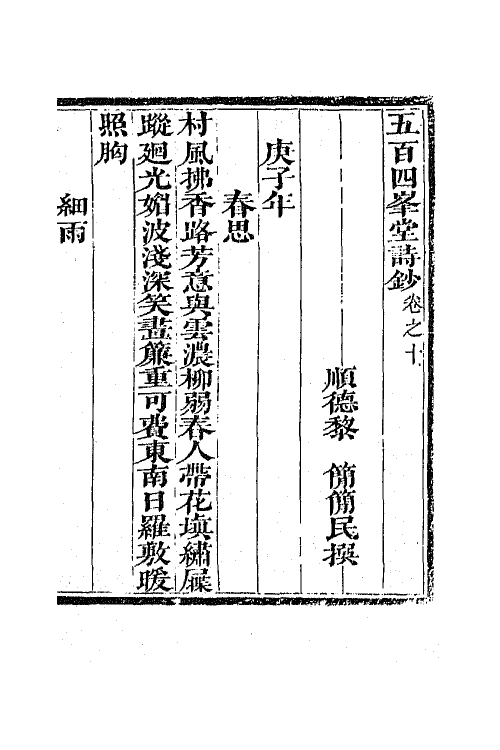 五百四峯堂詩鈔卷之十
順德黎 簡簡民撰
庚子年
春思
村風拂香路芳意與雲濃柳弱春人帶花塡繡屧
蹤廻光媚波淺深笑畫簾重可費東南日羅敷暖
照胸
細雨